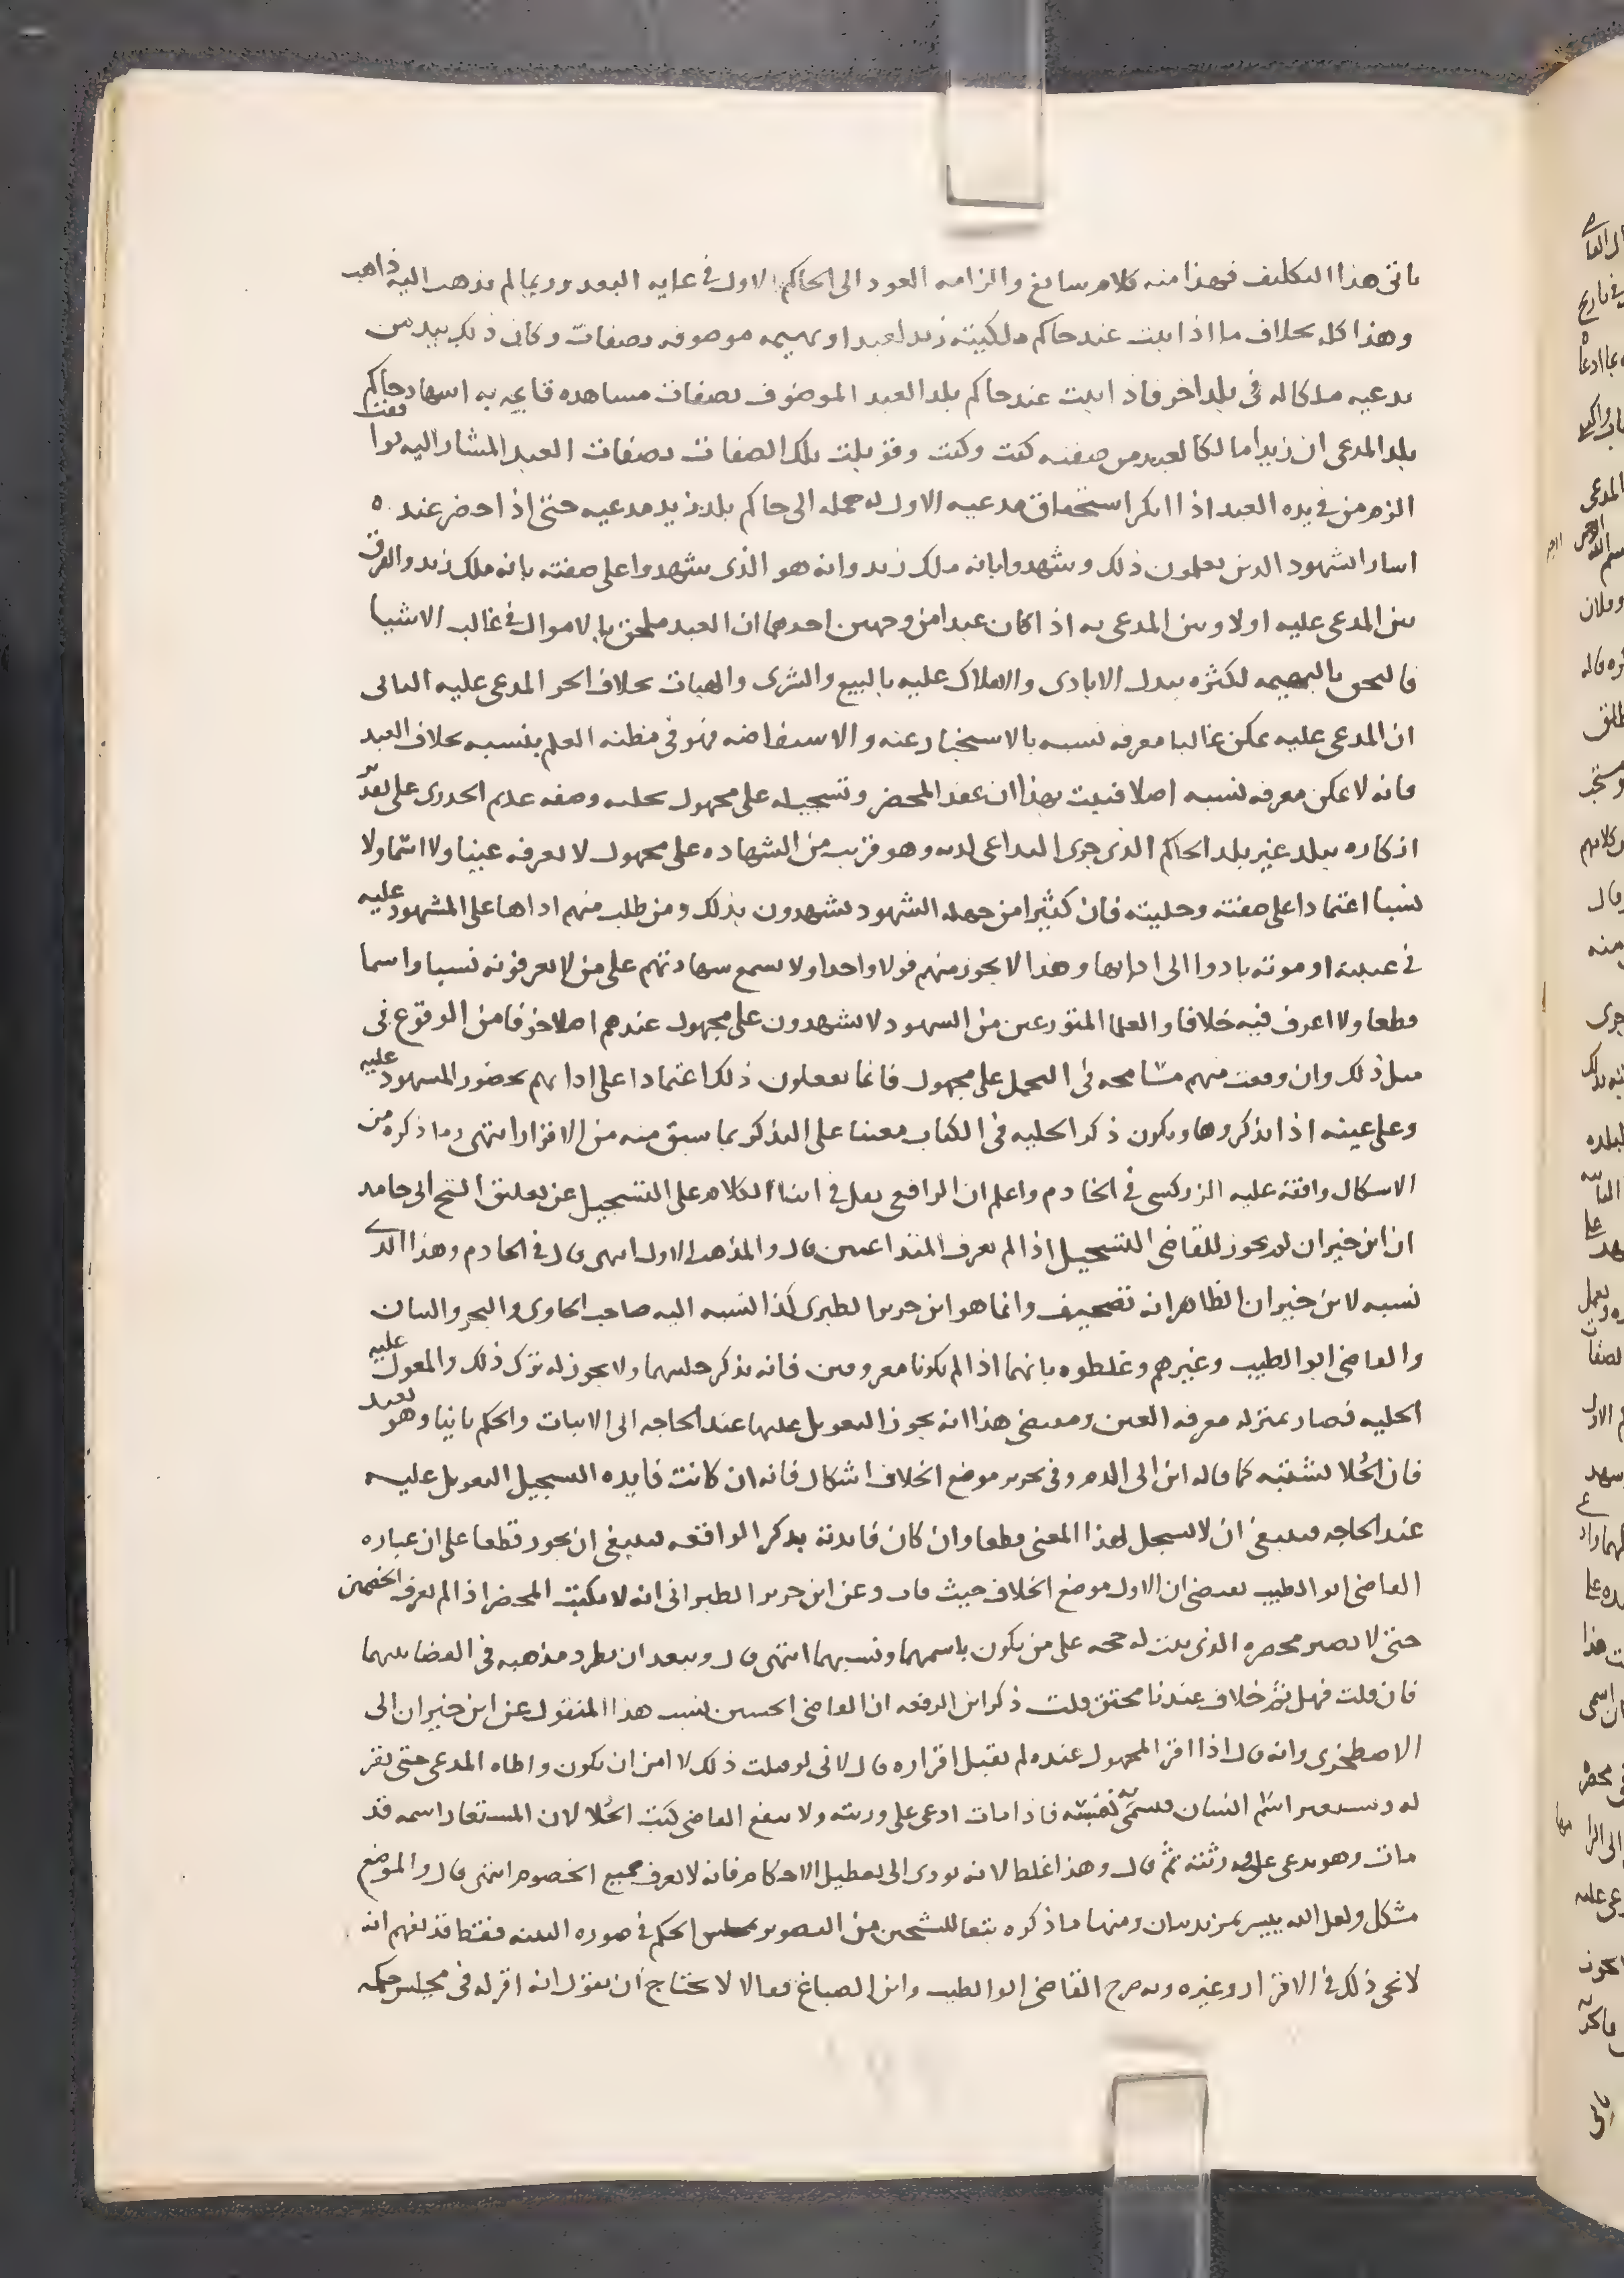 ياتي هذا التكليف فهذا منه كلام سايغ والزامه العود الى الحاكم الاول في غايه البعد وربما لم يذهب اليه ذاهب
وهذا كله بخلاف ما اذا ثبت عند حاكم ملكيته زيد لعبد او بهيمه موصوفه بصفات وكان ذلك بيد من
يدعيه ملكا له في بلد اخر فاذا ثبت عند حاكم بلد العبد الموصوف بصفات مشاهده قايمه به اشهاد حاكم
بلد المدعي ان زيدا مالكا لعبد من صفته كيت وكيت وقوبلت تلك الصفات بصفات العبد المشار اليه فوافقت
الزم من في يده العبد اذا انكر استحقاق مدعيه الاول له حمله الى حاكم بلد زيد مدعيه حتى اذا احضر عنده
اشار الشهود الذين يعلمون ذلك وشهدوا بانه ملك زيد وانه هو الذي شهدوا على صفته بانه ملك زيد والفرق
بين المدعى عليه اولا وبين المدعى به اذا كان عبدا من وجهين احدهما ان العبد ملحق بالاموال في غالب الاشيا
فالتحق بالبهيمه لكثره تبدل الايادي والاملاك عليه بالبيع والشرى والهبات بخلاف الحر المدعى عليه الثاني
ان المدعى عليه يمكن غالبا معرفه نسبه بالاستخبار عنه والاستفاضه فهو في مظنه العلم بنسبه بخلاف العبد
فانه لا يمكن معرفه نسبه اصلا فثبت بهذا ان عقد المحضر وتسجيله على مجهول بحليه وصفه عديم الجدوى على بعد
انكاره ببلد غير بلد الحاكم الذي جرى التداعي لديه وهو قريب من الشهاده على مجهول لا يعرفه عينيا ولا اسما ولا
نسبا اعتمادا على صفته وحليته فان كثيرا من جهله الشهود يشهدون بذلك ومن طلب منهم اداها على المشهود عليه
في غيبته او موته بادوا الى ادايها وهذا لا يجوز منهم قولا واحدا ولا يسمع شهادتهم على من لا يعرفونه نسبا واسما
قطعا ولا اعرف فيه خلافا والعلما المتورعين من الشهود لا يشهدون على مجهول عندهم اصلا خوفا من الوقوع في
مثل ذلك وان وقعت منهم مسامحه في التحمل على مجهول فانما يفعلون ذلك اعتمادا على ادايهم بحضور المشهود عليه
وعلى عينه اذا تذكروها ويكون ذكر الحليه في الكتاب معينا على التذكر بما سبق منه من الاقرار انتهى وما ذكره من
الاشكال وافقه عليه الزركشي في الخادم واعلم ان الرافعي نقل في اثنا الكلام على التسجيل عن تعليق الشيخ ابي حامد
ان ابن خيران لم يجوز للقاضي التسجيل اذا لم يعرف المتداعيين قال والمذهب الاول انتهى قال في الخادم وهذا الذي
نسبه لابن خيران الظاهر انه تصحيف وانما هو ابن جرير الطبري كذا نسبه اليه صاحب الحاوي والبحر والبيان
والقاضي ابو الطيب وغيرهم وغلطوه بانهما اذا لم يكونا معروفين فانه يذكر حليتهما ولا يجوز له ترك ذلك والمعول عليه
الحليه فصار بمنزله معرفه العين ومقتضى هذا انه يجوز التعويل عليها عند الحاجه الى الاثبات والحكم ثانيا وهو بعيد
فان الحلا تشتبه كما قاله ابن ابي الدم وفي تحرير موضع الخلاف اشكال فانه ان كانت فايده التسجيل التعويل عليه
عند الحاجه فينبغي ان لا يسجل لهذا المعنى قطعا وان كان فايدته تذكر الواقعه فينبغي ان يجوز قطعا على ان عباره
القاضي ابو الطيب تقتضي ان الاول موضع الخلاف حيث قال وعن ابن جرير الطبراني انه لا يكتب المحضر اذا لم يعرف الخصمين
حتى لا يصير محضره الذي يثبت له حجه على من يكون باسمهما ونسبهما انتهى قال ويبعد ان يطرد مذهبه في القضا بينهما
فان قلت فهل ثم خلاف عندنا محقق قلت ذكر ابن الرفعه ان القاضي الحسين نسب هذا المنقول عن ابن خيران الى
الاصطخري وانه قال اذا اقر المجهول عنده لم يقبل اقراره قال لاني لو قبلت ذلك لا امن ان يكون واطاه المدعي حتى يقر
له ويستعير اسم انسان فيسمى نفسه فاذا مات ادعى على ورثته ولا ينفع القاضي كتب الحلا لان المستعار اسمه قد
مات وهو يدعي على ورثته ثم قال وهذا غلط لانه يودي الى تعطيل الاحكام فانه لا يعرف جميع الخصوم انتهى قال والموضع
مشكل ولعل الله ييسر بمزيد بيان ومنها ما ذكره تبعا للشيخين من التصوير بمجلس الحكم في صوره البينه فقط قد يفهم انه
لا يجي ذلك في الاقرار وغيره وبه صرح القاضي ابو الطيب وابن الصباغ فقالا لا يحتاج ان يقول انه اقر له في مجلس حكمه